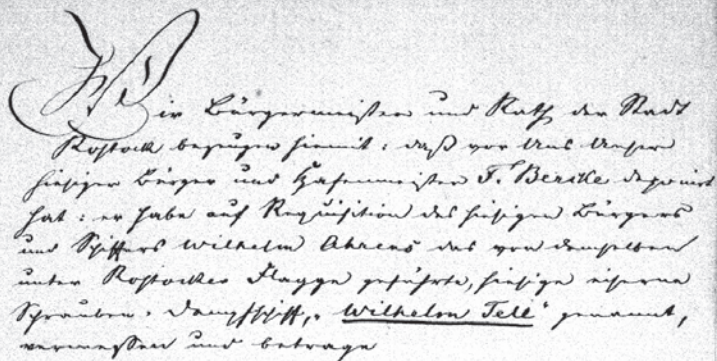 Wir Bürgermeister und Rath der Stadt
Rostock bezeugen hiemit: daß vor Uns Unser
hiesiger Bürger und Hafenmeister F. Bencke deponirt
hat: er habe auf Requisition des hiesigen Bürgers
und Schiffers Wilhelm Ahrens das von demselben
unter Rostocker Flagge geführte, hiesige eiserne
Schrauben-Dampfschiff, "Wilhelm Tell" genannt,
vermessen und betrage